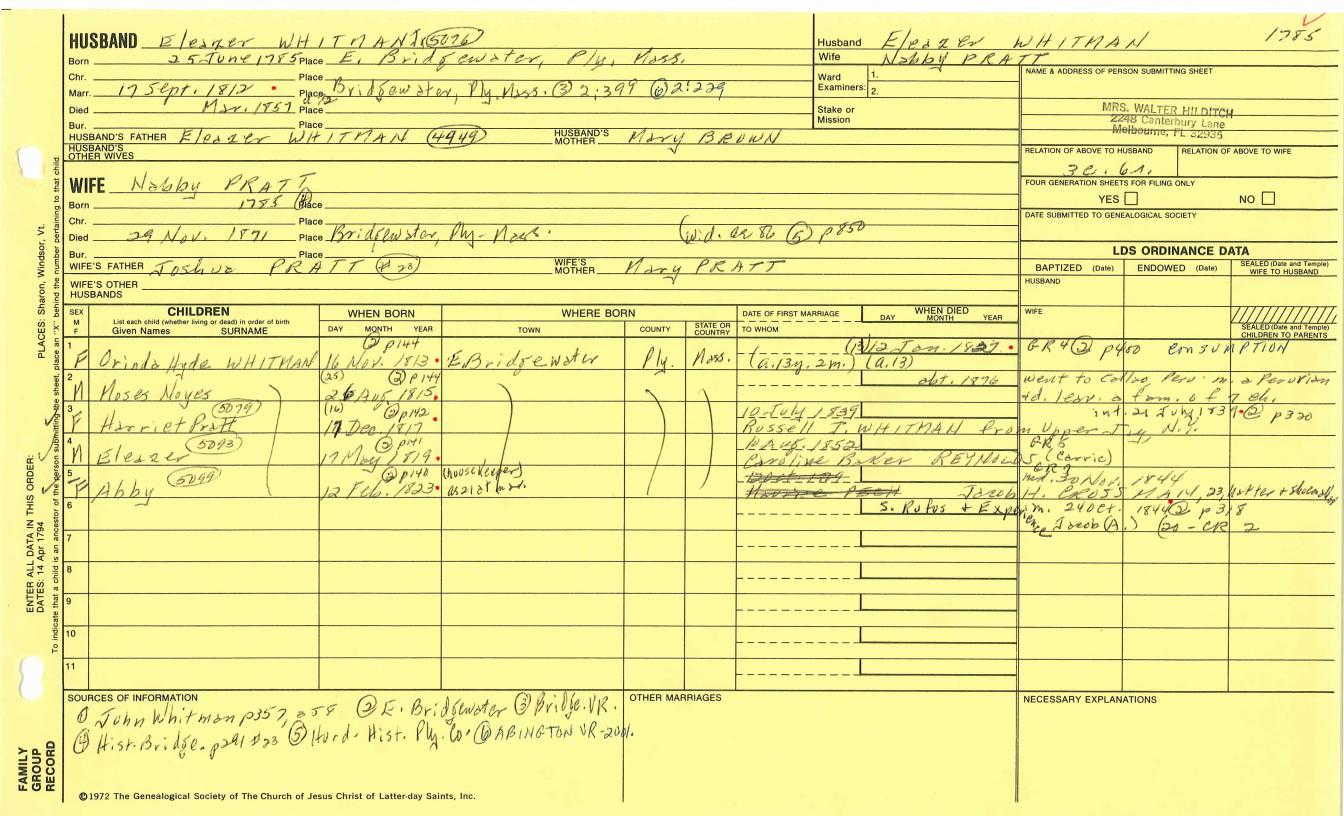 HUSBAND Eleazer WHITMAN Jr (5076)
Born 25 June 1785 Place E. Bridgewater, Ply, Mass.
Chr. Place
Marr. 17 Sept. 1812 Place Bridgewater, Ply. Mass. ③ 2:399 ⑥ 2:229
Died Mar. 1857 a 72 Place
Bur. Place
HUSBAND'S FATHER Eleazer WHITMAN (4949) HUSBAND'S MOTHER Mary BROWN
HUSBAND'S OTHER WIVES
WIFE Nabby PRATT
Born 1785 ④ Place
Chr. Place
Died 29 Nov. 1871 Place Bridgewater, Ply-Mass. (wid. ae 86 ⑤ p850
Bur. Place
WIFE'S FATHER Joshua PRATT (#23) WIFE'S MOTHER Mary PRATT
WIFE'S OTHER HUSBANDS
Husband Eleazer WHITMAN 1785
Wife Nabby PRATT
Ward Examiners: 1.
2.
Stake or Mission
NAME & ADDRESS OF PERSON SUBMITTING SHEET
MRS. WALTER HILDITCH
2248 Canterbury Lane
Melbourne, FL 32935
RELATION OF ABOVE TO HUSBAND RELATION OF ABOVE TO WIFE
3c. 6r.
FOUR GENERATION SHEETS FOR FILING ONLY
YES NO
DATE SUBMITTED TO GENEALOGICAL SOCIETY
LDS ORDINANCE DATA
BAPTIZED (Date) ENDOWED (Date) SEALED (Date and Temple) WIFE TO HUSBAND
HUSBAND
WIFE
SEALED (Date and Temple) CHILDREN TO PARENTS
SEX M F
CHILDREN
List each child (whether living or dead) in order of birth
Given Names SURNAME
WHEN BORN
DAY MONTH YEAR
WHERE BORN
TOWN COUNTY STATE OR COUNTRY
DATE OF FIRST MARRIAGE
TO WHOM
WHEN DIED
DAY MONTH YEAR
② p144
1 F Orinda Hyde WHITMAN 16 Nov. 1813 E Bridgewater Ply. Mass. (a.13y. 2m.) (13) 12 Jan. 1827 (a.13) GR4 ② p400 consumption
(25) ② p144
2 M Moses Noyes 26 Aug. 1815 abt. 1876 went to Callao, Peru m. a Peruvian
+d. leav. a fam. of 7 ch.
(5079) (16) ② p142
3 F Harriet Pratt 17 Dec. 1817 10 July 1839 int. 21 July 1839 ② p320
Russell T. WHITMAN from Upper
(5093) ② p141
4 M Eleazer 17 May 1819 12 Aug. 1852 GR5
Caroline Baker REYNOLDS (Carrie)
(5099) ② p140 (housekeeper)
5 F Abby 12 Feb. 1823 30 Nov. 1844
Jacob H. CROSS
6 s. Rufus + Experience m. 24 Oct. 1844 ② p318
Jacob (A.) (20-CR 2
7
8
9
10
11
SOURCES OF INFORMATION
① John Whitman p357, a58 ② E. Bridgewater ③ Bridge. VR.
④ Hist. Bridge. p291 #23 ⑤ Hurd-Hist. Ply. Co. ⑥ ABINGTON VR-2001.
OTHER MARRIAGES
NECESSARY EXPLANATIONS
©1972 The Genealogical Society of The Church of Jesus Christ of Latter-day Saints, Inc.
FAMILY GROUP RECORD
ENTER ALL DATA IN THIS ORDER:
DATES: 14 Apr 1794 PLACES: Sharon, Windsor, Vt.
To indicate that a child is an ancestor of the person submitting the sheet, place an "X" behind the number pertaining to that child